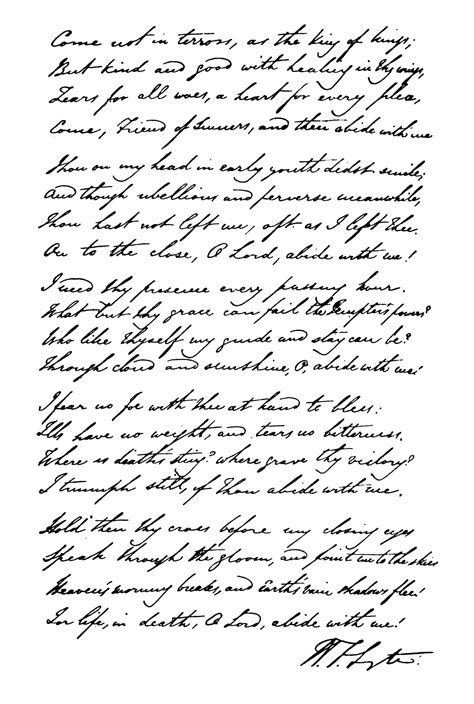 Come not in terrors, as the King of kings;
But kind and good with healing in thy wings,
Tears for all woes, a heart for every plea,
Come, Friend of Sinners, and then abide with me
Thou on my head in early youth didst smile;
And though rebellious and perverse meanwhile,
Thou hast not left me, oft as I left thee.
On to the close, O Lord, abide with me!
I need thy presence every passing hour.
What but thy grace can foil the Tempter's power?
Who like Thyself my guide and stay can be?
Through cloud and sunshine, O, abide with me!
I fear no foe with thee at hand to bless:
Ills have no weight, and tears no bitterness.
Where is death's sting? where grave thy victory?
I triumph still, if Thou abide with me.
Hold then thy cross before my closing eyes
Speak through the gloom, and point me to the skies
Heaven's morning breaks, and Earth's vain shadows flee!
In life, in death, O Lord, abide with me!
H. F. Lyte.